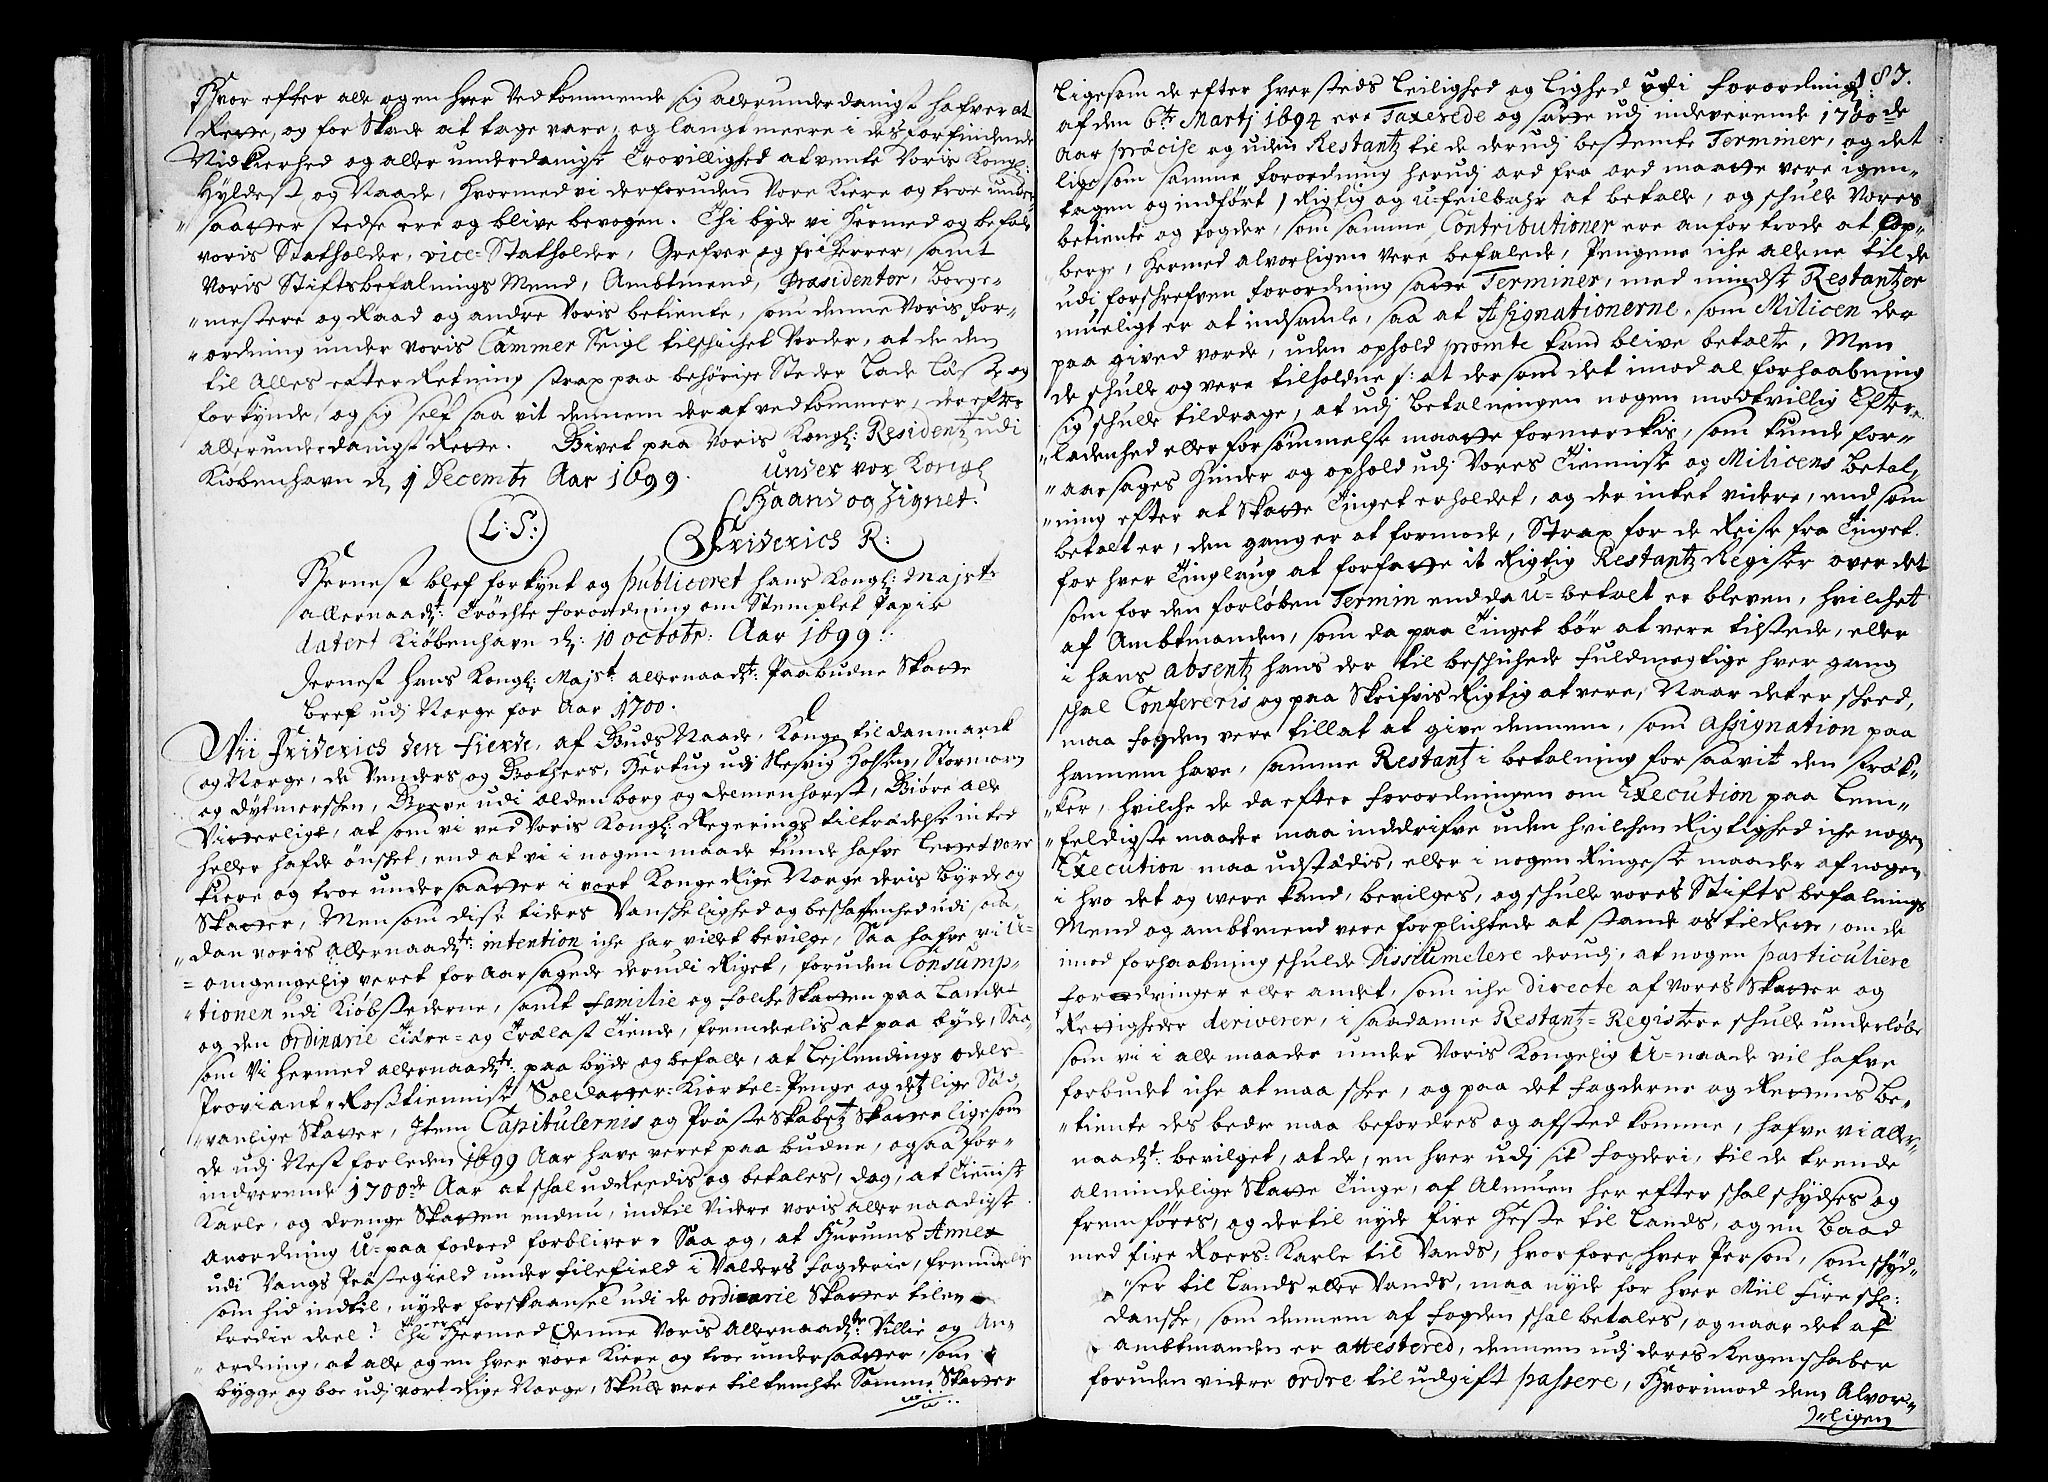 Hvor efter alle og en hver Vedkommende sig allerunderdanigst hafver at
Rette, og for Skade at tage vare, og langt meere i des forfindende
Vidkierhed og aller underdanigst Trovillighed at vente Voris Kongl:
Hyldest og Naade, hvormed vi desforuden Vore Kiere og troe under-
saatter stedse ere og blive bevogen. Thi byde vi Hermed og befale
voris Statholder, vice-Statholder, Grefver og friherrer, samt
Voris Stiftsbefalnings Mend, Ambtmend, Præsidenter, Borge-
mestere og Raad og andre Voris betiente, som denne Voris for-
ordning under voris Cammer Seigl tilschichet Vorder, at de den
til Alles efterRetning strax paa behörige Steder Lade Læse og
forkynde, og sig self saa vit dennem deraf vedkommer, der efter
allerunderdanigst Rette. Givet paa Voris Kongl: Residentz udi
Kiöbenhavn d: 9 Decembr Aar 1699. Under vor Konigl
Haand og Zignet.
L: S: Friderich R:
Hernest blef forkynt og publiceret hans Kongl: Majst:
allernaadt: Tröchte forordning om Stemplet Papir
datert Kiöbenhavn d: 10 octobr: Aar 1699.
dernest hans Kongl: Majst: allernaadt: Paabudne Skatte
bref udj Norge for Aar 1700.
Wii Friderich den Fierde, af Guds Naade, Konge til danmarck
og Norge, de Venders og Gothers, Hertug udj Slesvig Holsten, Stormarn
og dytmerschen, Greve udi oldenborg og delmenhorst, Giöre alle
Vitterligt, at som vi ved Voris Kongl: Regerings tiltrædelse inted
heller hafde önschet, end at vi i nogen maade kunde hafve Lettet vore
kiere og troe undersaatter i vort Konge Rige Norge deris byrde og
Skatter, Men som disse tiders Vanschelighed og beschaffenhed udi saa-
dan voris allernaadt: intention iche har villet bevilge, Saa hafve vi U-
omgengelig veret for Aarsagede derudi Riget, foruden Consump-
tionen udi Kiöbstederne, samt familie og folche Skatten paa Landet
og den ordinarie Tiære= og Trælast Tiende, fremdeelis at paa byde, Saa-
som Vi hermed allernaadt: paa byde og befalle, at Lejlendings odels
Proviant, Rosstienniste Soldatter-Kiortel-Penge og detzlige Sæd-
vanlige Skatter, Item Capitulernis og Præsteskabetz Skatter ligesom
de udj Nest forleden 1699 Aar have veret paa budne, ogsaa for
indverende 1700de Aar at schal udReedis og betales, dog, at Tieniste
Karle, og drenge Skatten endnu, indtil Videre voris allernaadigste
anordning U-paa fodred forbliver, Saa og, at Hurums Annex
udi Vangs Præstegield under filefield i Valders fogderie, fremdeelis
som hid indtil, nyder forskaansel udi de ordinarie Skatter til en
tredie deel: Thi er Hermed Denne Voris Allernaadt: Villie og An-
ordning, at alle og en hver vore Kiere og troe undersaatter, som
bygge og boe udj vort Rige Norge, Skulle vere tiltenchte Samme Skatter
187.
ligesom de efter hversteds Leilighed og lighed udi forordning
af den 6te Martj 1694 ere Taxerede og satte udj indeverende 1700de
Aar præcise og uden Restantz til de derudj bestemte Terminer, og det
ligesom samme forordning herudj ord fra ord maatte vere igen-
tagen og indfört, Rigtig og u-feilbahr at betale, og schulle Vores
betiente og fogder, som samme Contributioner ere anfortrode at Op-
berge, Hermed alvorligen vere befalede, Pengene iche allene til de
udi forschrefven forordning satte Terminer, med mindst Restantzer
mueligt er at indsamle, saa at Assignationerne, som Milicen der
paa gived vorde, uden ophold promte kand blive betalte, Men
de schulle og vere tilholdne, at dersom det imod al forhaabning
sig schulle tildrage, at udj betalningen nogen modtvillig Efter-
ladenhed eller forsömmelse maatte formerckis, som kunde for-
aarsages hinder og ophold udj Vores Tienniste og Milicens betal-
ning efter at Skatte Tinget er holdet, og der intet videre, end som
betalt er, den gang er at formode, Strax for de Reise fra Tinget
for hver Tinglaug at forfatte it Rigtig Restantz Register over det
som for den forloben Termin endda U-betalt er bleven, hvilchet
af Ambtmanden, som da paa Tinget bör at vere tilstede, eller
i hans absentz hans der til beschichede fuldmegtige hver gang
schal Confereris og paa Skrifvis Rigtig at vere, Naar det er scheed,
maa fogden vere tillat at give dennem, som assignation paa
hannem have, samme Restantz i betalning for saavit den strek-
ker, hvilche de da efter forordningen om Execution paa Lem-
feldigste maader maa inddrifve uden hvilchen Rigtighed iche nogen
Execution maa udstædis, eller i nogen Ringeste maader af nogen
i hvo det og were kand, bevilges, og schulle vores Stifts befalnings
Mend og ambtmend vere forplichtede at stande os til Rette, om de
imod forhaabning schulde dissimulere derudj, at nogen particuliere
fordringer eller andet, som iche directe af Vores Skatter og
Rettigheder deriverer, i saadanne Restantz-Registere schulle underlöbe
som vi i alle maader under Voris Kongelig U-naade vil hafve
forbudet iche at maa schee, og paa det fogderne og Rettens be-
tiente des bedre maa befordres og afsted komme, hafve vi aller-
naadt: bevilget, at de, en hver udj sit fogderi, til de trende
almindelige Skatte Tinge, af Almuen her efter schal schydses og
fremföres, og dertil nyde fire Heste til Lands, og en Baad
med fire Roers-Karle til Vands, hvorfore hver Person, som schyd-
ser til Lands eller Vands, maa nyde for hver Miil fire schl:
danske, som dennem af fogden schal betales, og naar det af
ambtmanden er attestered, dennem udj deres Regenschaber
foruden videre ordre til udgift passere, Hvorimod dem Alvor-
ligen